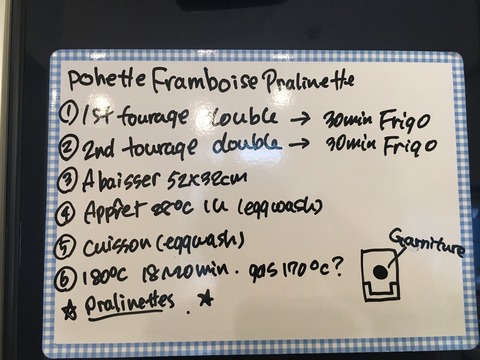 Pohette Framboise Pralinette
① 1st tourage double → 30min Frigo
② 2nd tourage double → 30min Frigo
③ Abaisser 52x32cm
④ Apprêt 28°C 1H (eggwash)
⑤ cuisson (eggwash)
⑥ 180°C 18~20min. gas 170°C?
Garniture
☆ Pralinettes. ☆